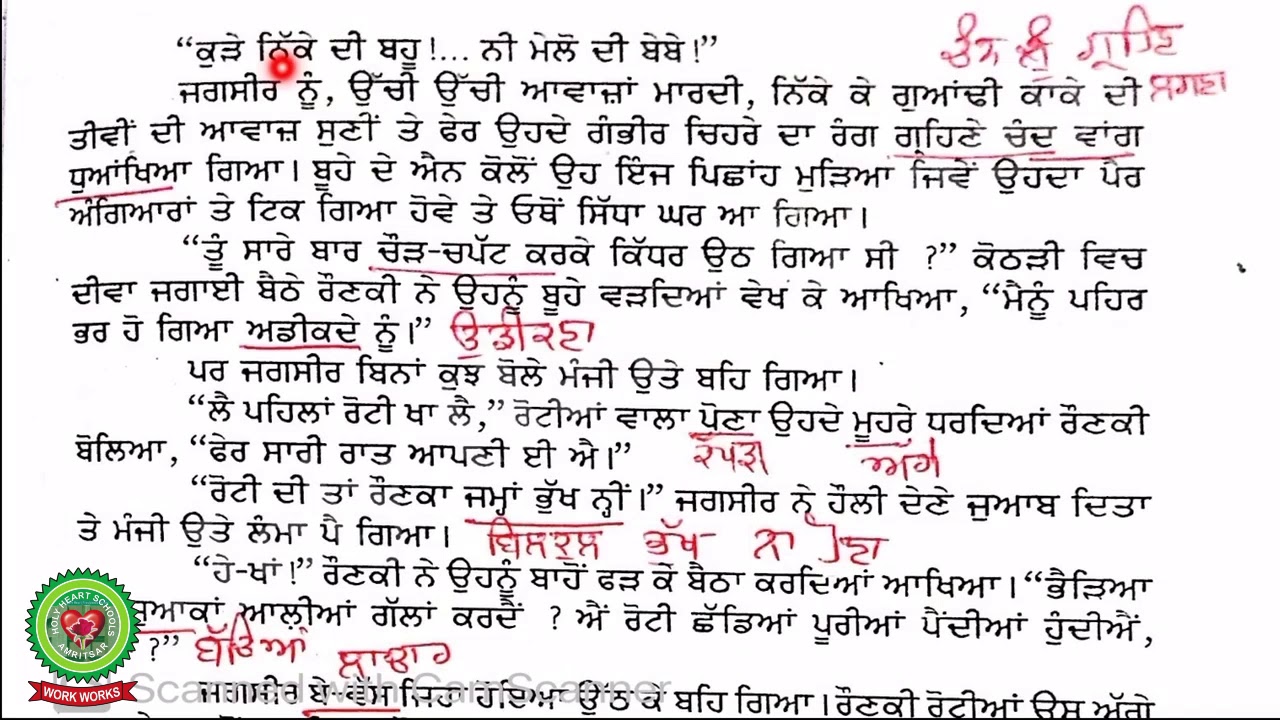 “ਕੁੜੇ ਨਿੱਕੇ ਦੀ ਬਹੂ !... ਨੀ ਮੇਲੋ ਦੀ ਬੇਬੇ !”
ਚੰਨ ਨੂੰ ਗ੍ਰਹਿਣ
ਲਗਣਾ
ਜਗਸੀਰ ਨੂੰ, ਉੱਚੀ ਉੱਚੀ ਆਵਾਜ਼ਾਂ ਮਾਰਦੀ, ਨਿੱਕੇ ਕੇ ਗੁਆਂਢੀ ਕਾਕੇ ਦੀ
ਤੀਵੀਂ ਦੀ ਆਵਾਜ਼ ਸੁਣੀਂ ਤੇ ਫੇਰ ਉਹਦੇ ਗੰਭੀਰ ਚਿਹਰੇ ਦਾ ਰੰਗ ਗ੍ਰਹਿਣੇ ਚੰਦ ਵਾਂਗ
ਧੁਆਂਖਿਆ ਗਿਆ। ਬੂਹੇ ਦੇ ਐਨ ਕੋਲੋਂ ਉਹ ਇੰਜ ਪਿਛਾਂਹ ਮੁੜਿਆ ਜਿਵੇਂ ਉਹਦਾ ਪੈਰ
ਅੰਗਿਆਰਾਂ ਤੇ ਟਿਕ ਗਿਆ ਹੋਵੇ ਤੇ ਓਥੋਂ ਸਿੱਧਾ ਘਰ ਆ ਗਿਆ।
“ਤੂੰ ਸਾਰੇ ਬਾਰ ਚੌੜ-ਚਪੱਟ ਕਰਕੇ ਕਿੱਧਰ ਉਠ ਗਿਆ ਸੀ ?” ਕੋਠੜੀ ਵਿਚ
ਦੀਵਾ ਜਗਾਈ ਬੈਠੇ ਰੌਣਕੀ ਨੇ ਉਹਨੂੰ ਬੂਹੇ ਵੜਦਿਆਂ ਵੇਖ ਕੇ ਆਖਿਆ, “ਮੈਨੂੰ ਪਹਿਰ
ਭਰ ਹੋ ਗਿਆ ਅਡੀਕਦੇ ਨੂੰ।” ਉਡੀਕਣਾ
ਪਰ ਜਗਸੀਰ ਬਿਨਾਂ ਕੁਝ ਬੋਲੇ ਮੰਜੀ ਉਤੇ ਬਹਿ ਗਿਆ।
“ਲੈ ਪਹਿਲਾਂ ਰੋਟੀ ਖਾ ਲੈ,” ਰੋਟੀਆਂ ਵਾਲਾ ਪੋਣਾ ਉਹਦੇ ਮੂਹਰੇ ਧਰਦਿਆਂ ਰੌਣਕੀ
ਬੋਲਿਆ, “ਫੇਰ ਸਾਰੀ ਰਾਤ ਆਪਣੀ ਈ ਐ।” ਕੱਪੜਾ ਅੱਗੇ
“ਰੋਟੀ ਦੀ ਤਾਂ ਰੌਣਕਾ ਜਮ੍ਹਾਂ ਭੁੱਖ ਨ੍ਹੀਂ।” ਜਗਸੀਰ ਨੇ ਹੌਲੀ ਦੇਣੇ ਜੁਆਬ ਦਿਤਾ
ਤੇ ਮੰਜੀ ਉਤੇ ਲੰਮਾ ਪੈ ਗਿਆ। ਬਿਲਕੁਲ ਭੁੱਖ ਨਾ ਹੋਣਾ
“ਹੇ-ਖਾਂ !” ਰੌਣਕੀ ਨੇ ਉਹਨੂੰ ਬਾਹੋਂ ਫੜ ਕੇ ਬੈਠਾ ਕਰਦਿਆਂ ਆਖਿਆ। “ਭੈੜਿਆ
ਜੁਆਕਾਂ ਆਲੀਆਂ ਗੱਲਾਂ ਕਰਦੈਂ ? ਐਂ ਰੋਟੀ ਛੱਡਿਆਂ ਪੂਰੀਆਂ ਪੈਂਦੀਆਂ ਹੁੰਦੀਐਂ,
?” ਬੱਚਿਆਂ ਲਾਚਾਰ
ਜਗਸੀਰ ਬੇ-ਵੱਸ ਜਿਹਾ ਹੁੰਦਿਆਂ ਉਠ ਕੇ ਬਹਿ ਗਿਆ। ਰੌਣਕੀ ਰੋਟੀਆਂ ਉਸ ਅੱਗੇ
Scanned with CamScanner
HOLY HEART SCHOOLS
AMRITSAR
WORK WORKS